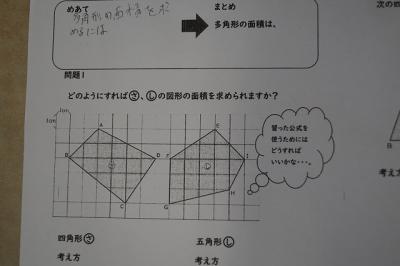 めあて
多角形の面積を求
めるには
まとめ
多角形の面積は、
問題1
どのようにすればさ、しの図形の面積を求められますか？
1cm
1cm
A
B
D
C
さ
E
F
I
G
H
し
習った公式を
使うためには
どうすれば
いいかな・・・。
四角形さ
五角形し
考え方
考え方
次の四
B
考え方